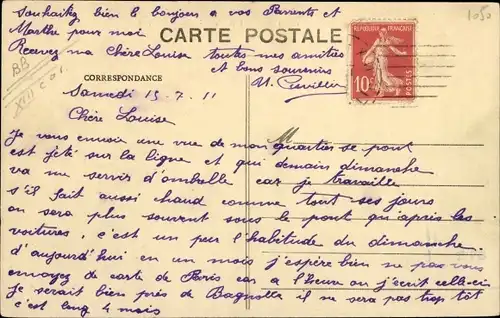 Souhaitez bien le bonjour a vos Parents et
Marthe pour moi
Recevez ma Chère Louise toutes mes amitiés
et bons souvenirs
CARTE POSTALE
REPUBLIQUE FRANÇAISE
10c
POSTES
1050
BB
CORRESPONDANCE
Samedi 15-7-11
Chère Louise
M
Je vous envoie une vue de mon quartier se pont
est jeté sur la ligne et qui demain dimanche
va me servir d'ombelle car je travaille
s'il fait aussi chaud comme tout ses jours
on sera plus souvent sous le pont qu'après les
voitures, c'est un peu l'habitude du dimanche.
d'aujourd'hui en un mois j'espère bien ne pas vous
envoyez de carte de Paris car a l'heure ou j'ecrit celle-ci
je serait bien près de Bagnolle il ne sera pas trop tôt
c'est long 4 mois